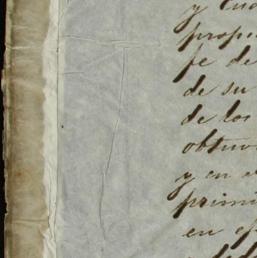 y Cua
propi
fe de
de su
de los
obtuv
y en e
primi
en of